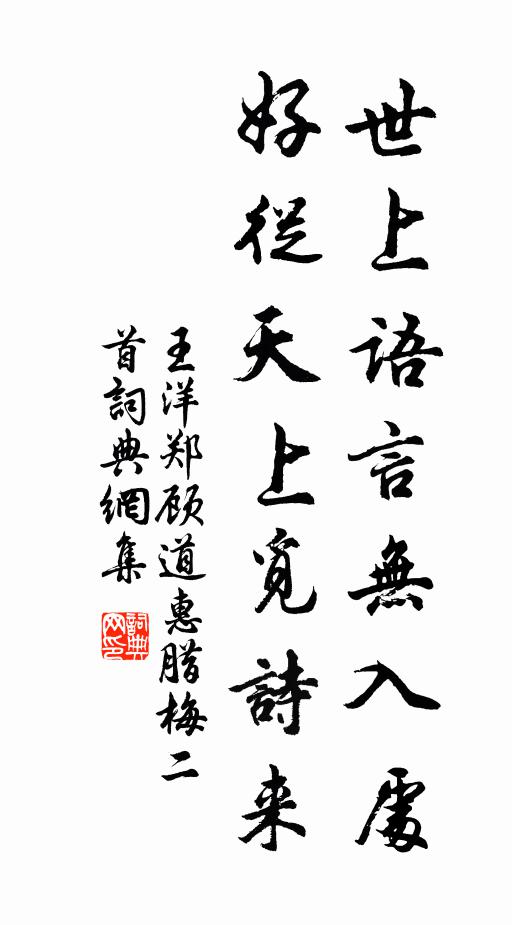 世上語言無入處
好從天上覓詩来
王洋郑顾道惠腊梅二
首詞典網集
詞典网印